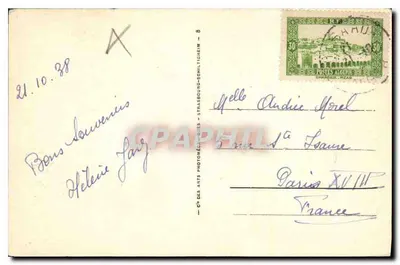 21.10.38
Bons Souvenirs
Hélène
Cie DES ARTS PHOTOMÉCANIQUES - STRASBOURG-SCHILTIGHEIM - 8
RF
CPAPHIL
Melle Andrée Morel
rue Ste Isaure
Paris XVIII
France